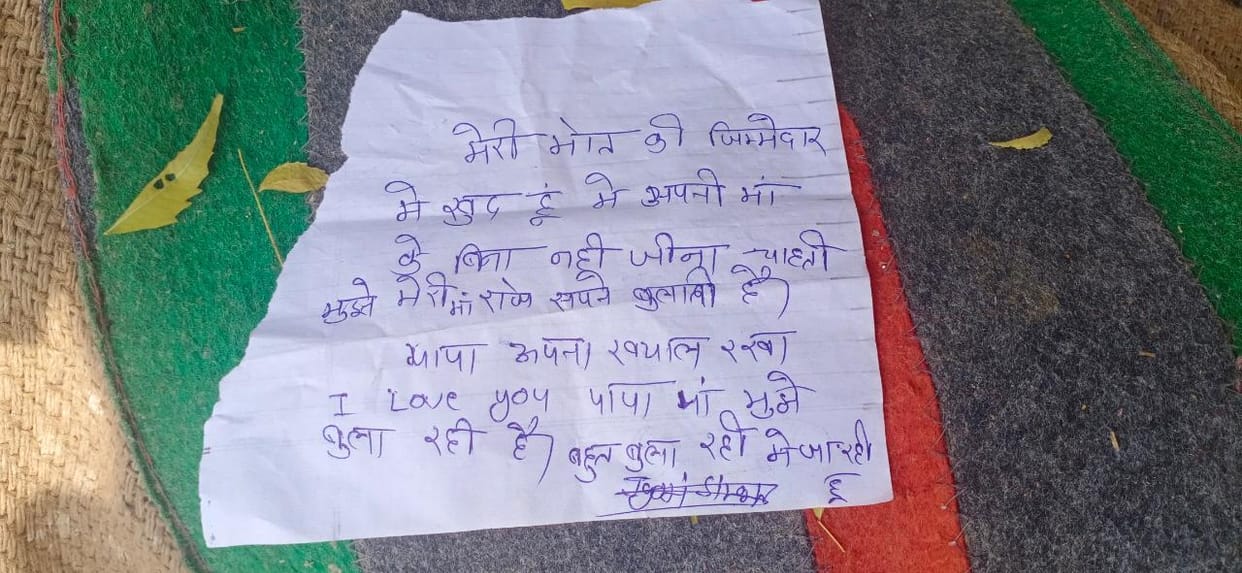 मेरी मोत की जिम्मेदार
मे खुद हूं मे अपनी मां
के बिना नही जीना चाहती
मुझे मेरी मां सपने बुलाती है)
पापा अपना ख्याल रखा
I Love you पापा मां मुझे
बुला रही है) बहुत बुला रही मे जा रही
हू